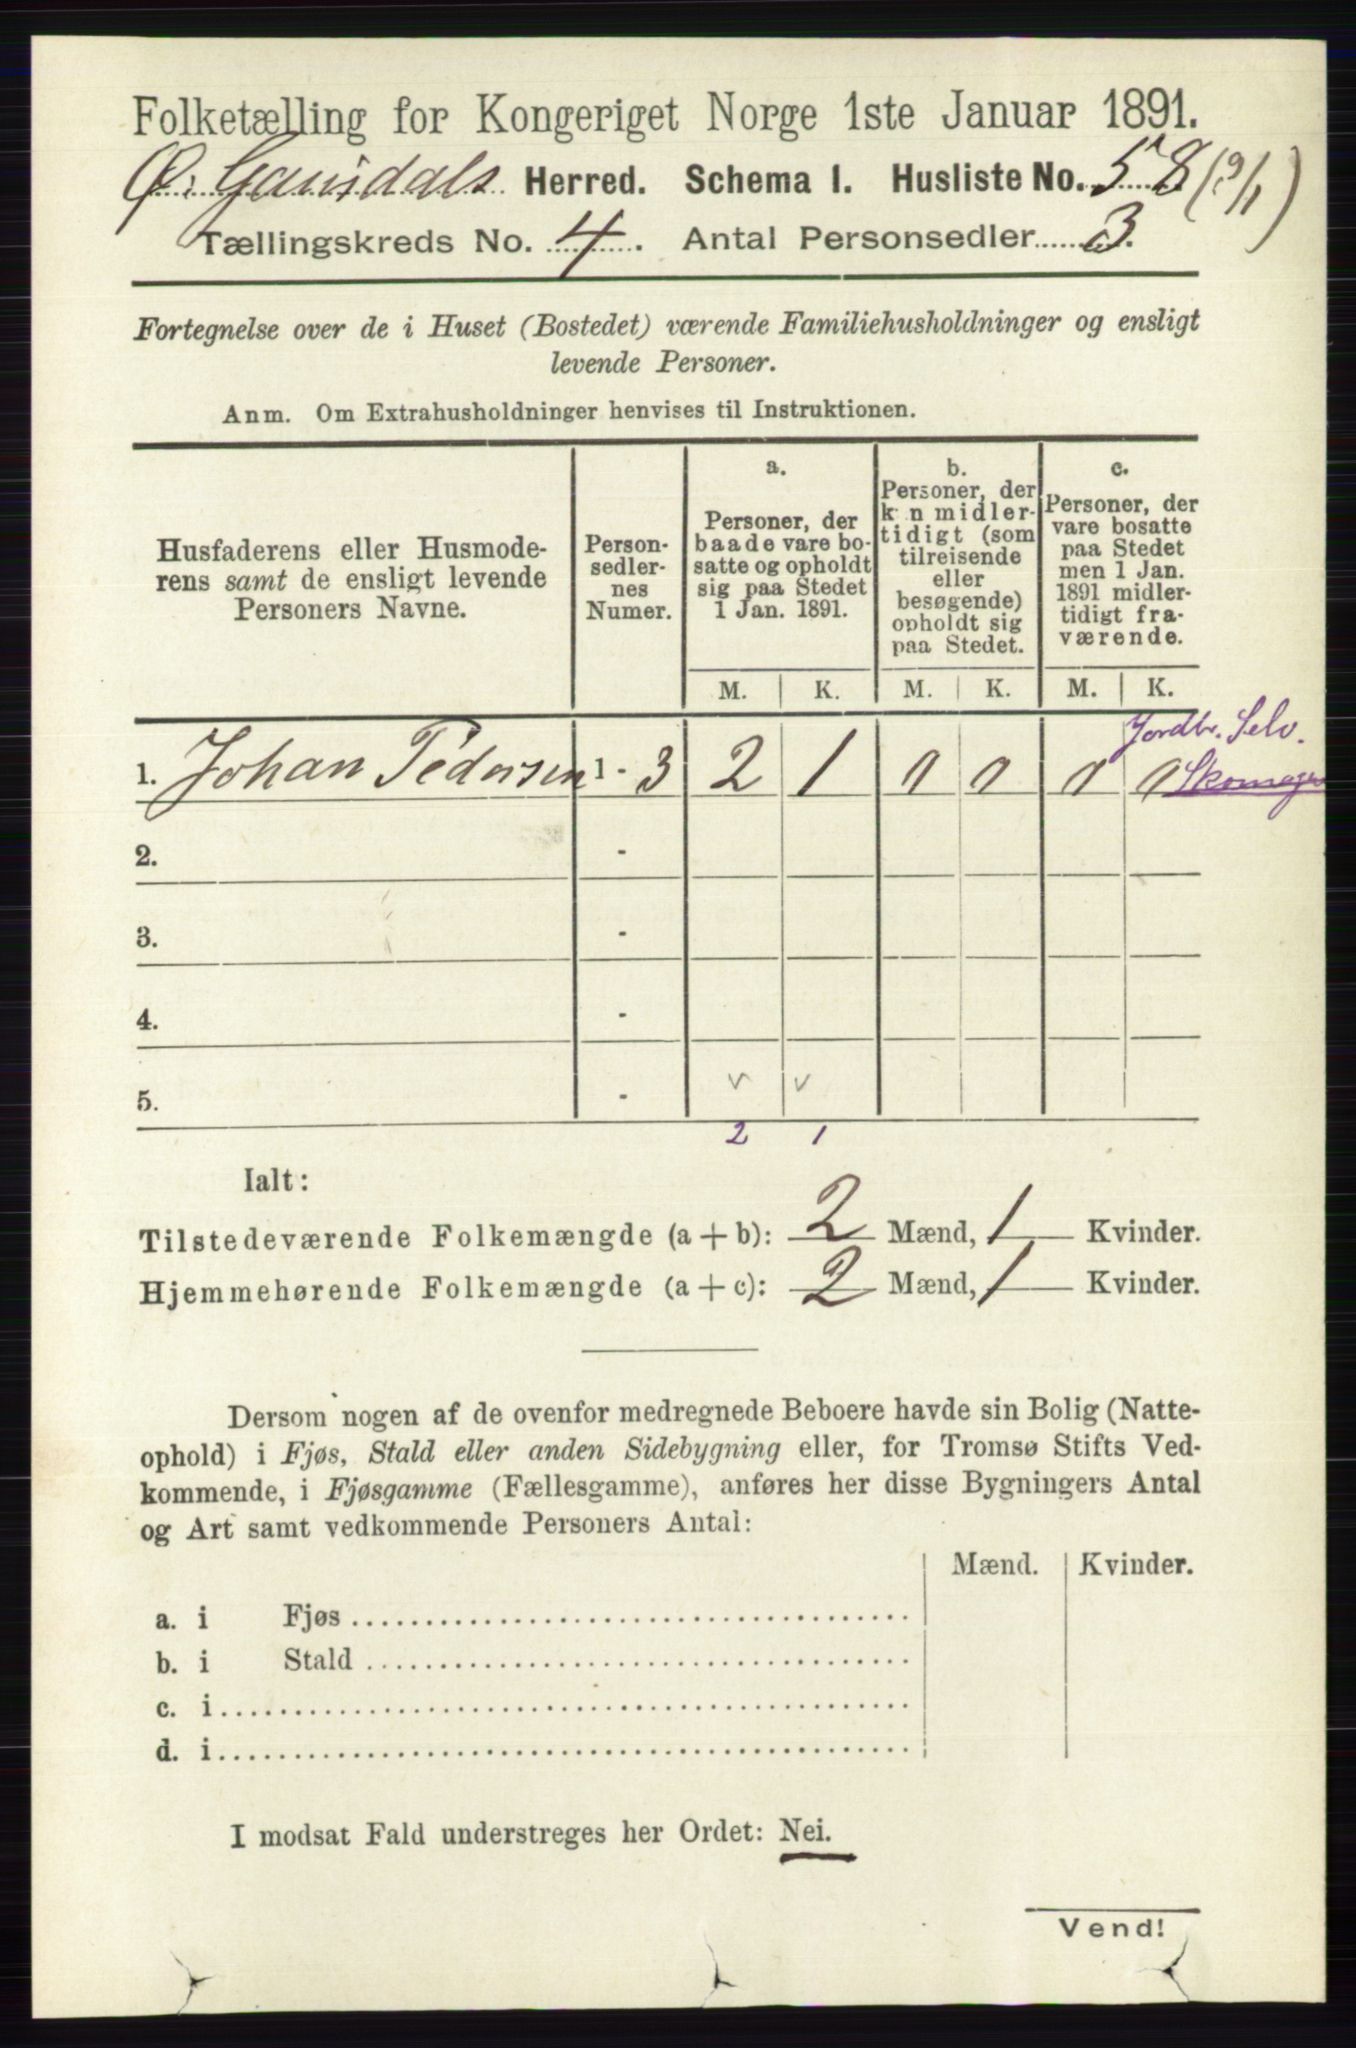 Folketælling for Kongeriget Norge 1ste Januar 1891.
Ø. Gausdals Herred. Schema I. Husliste No. 58 (9/1)
Tællingskreds No. 4. Antal Personsedler 3.
Fortegnelse over de i Huset (Bostedet) værende Familiehusholdninger og ensligt
levende Personer.
Anm. Om Extrahusholdninger henvises til Instruktionen.
Husfaderens eller Husmode-
rens samt de ensligt levende
Personers Navne.
Person-
sedler-
nes
Numer.
a.
Personer, der
baade vare bo-
satte og opholdt
sig paa Stedet
1 Jan. 1891.
b.
Personer, der
kun midler-
tidigt (som
tilreisende
eller
besøgende)
opholdt sig
paa Stedet.
c.
Personer, der
vare bosatte
paa Stedet
men 1 Jan.
1891 midler-
tidigt fra-
værende.
M. K. M. K. M. K.
Jordbr. Selv.
1. Johan Pedersen 1 - 3 2 1 0 0 0 0 Skomager
2. -
3. -
4. -
5. -
v v
2 1
Ialt:
Tilstedeværende Folkemængde (a + b): 2 Mænd, 1 Kvinder.
Hjemmehørende Folkemængde (a + c): 2 Mænd, 1 Kvinder.
Dersom nogen af de ovenfor medregnede Beboere havde sin Bolig (Natte-
ophold) i Fjøs, Stald eller anden Sidebygning eller, for Tromsø Stifts Ved-
kommende, i Fjøsgamme (Fællesgamme), anføres her disse Bygningers Antal
og Art samt vedkommende Personers Antal:
Mænd. Kvinder.
a. i Fjøs
b. i Stald
c. i
d. i
I modsat Fald understreges her Ordet: Nei.
Vend!